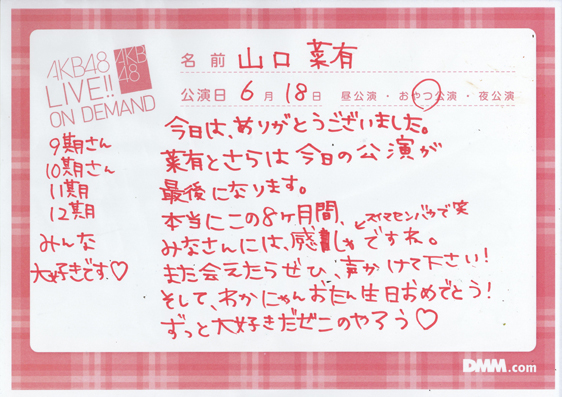 AKB48
LIVE!!
ON DEMAND
AKB
48
名前 山口 菜有
公演日 6月 18日 昼公演・おやつ公演・夜公演
9期さん
10期さん
11期
12期
みんな
大好きです♡
今日は、ありがとうございました。
菜有とさらは今日の公演が
最後になります。
本当にこの8ヶ月間、
とスイマセンバカで笑
みなさんには、感しゃですね。
また会えたらぜひ、声かけて下さい!
そして、わかにゃんおたん生日おめでとう!
ずっと大好きだぜこのやろう♡
DMM.com